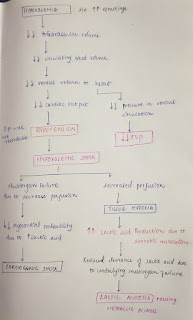 HYPOVOLEMIA
↓↓ intravascular volume
↓↓ circulating blood volume
↓↓ venous return to heart
↓↓ cardiac output
↓↓ pressure in venous circulation
HYPOTENSION
↓↓ JVP
HYPOVOLEMIC SHOCK
Multiorgan failure
due to decrease perfusion
decreased perfusion
TISSUE HYPOXIA
↓↓ myocardial contractility
due to ↑ lactic acid
↑↑ Lactic acid production due to
anaerobic metabolism
CARDIOGENIC SHOCK
Reduced clearance of lactic acid due
to underlying multiorgan failure
LACTIC ACIDOSIS causing
METABOLIC ACIDOSIS